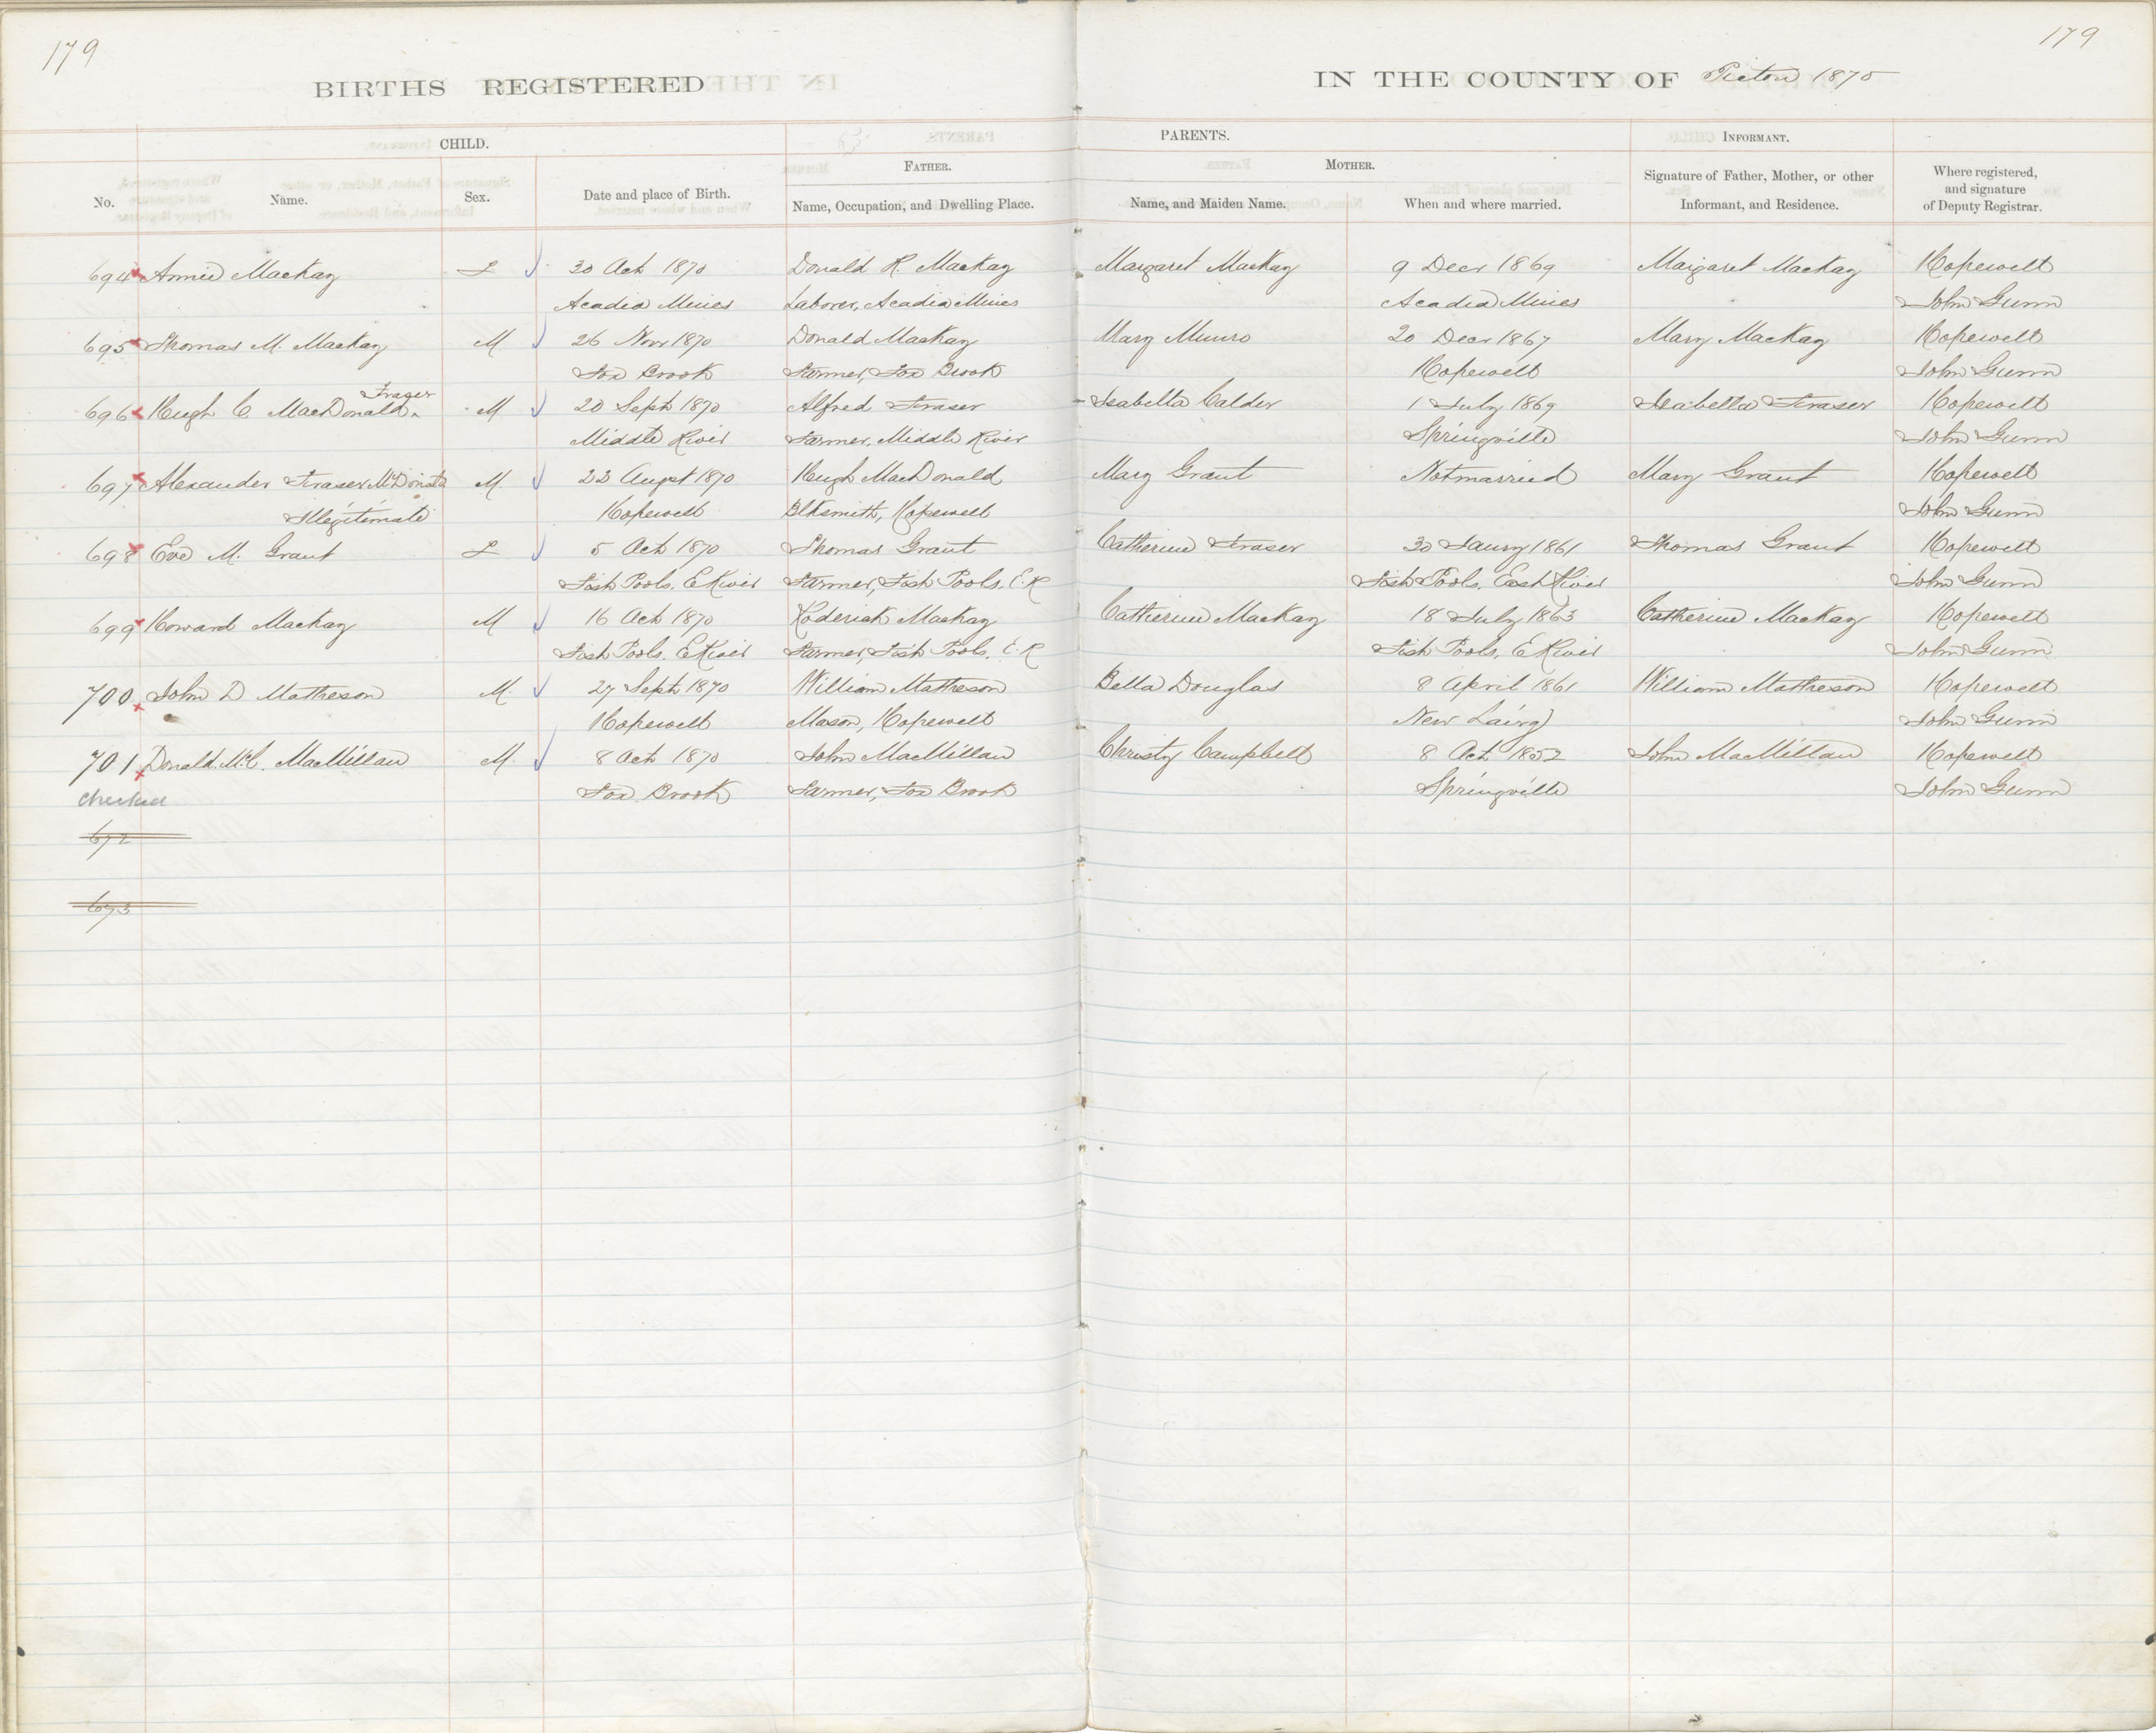 179
179
BIRTHS REGISTERED
IN THE COUNTY OF Pictou 1870
CHILD.
PARENTS.
INFORMANT.
FATHER.
MOTHER.
No.
Name.
Sex.
Date and place of Birth.
Name, Occupation, and Dwelling Place.
Name, and Maiden Name.
When and where married.
Signature of Father, Mother, or other
Informant, and Residence.
Where registered,
and signature
of Deputy Registrar.
694 Annie MacKay F 30 Oct 1870 Donald R. MacKay Margaret MacKay 9 Decr 1869 Margaret MacKay Hopewell
Acadia Mines Laborer, Acadia Mines Acadia Mines John Gunn
695 Thomas M. MacKay M 26 Novr 1870 Donald MacKay Mary Munro 20 Decr 1867 Mary MacKay Hopewell
Fox Brook Farmer, Fox Brook Hopewell John Gunn
Fraser
696 Hugh C MacDonald M 20 Sept 1870 Alfred Fraser Isabella Calder 1 July 1869 Isabella Fraser Hopewell
Middle River Farmer, Middle River Springville John Gunn
697 Alexander Fraser McDonald M 23 Augst 1870 Hugh MacDonald Mary Grant Not married Mary Grant Hopewell
Illegitimate Hopewell Blksmith, Hopewell John Gunn
698 Eve M. Grant F 5 Oct 1870 Thomas Grant Catherine Fraser 30 Jany 1861 Thomas Grant Hopewell
Fish Pools, E River Farmer, Fish Pools, E. R Fish Pools, East River John Gunn
699 Howard MacKay M 16 Oct 1870 Roderick MacKay Catherine MacKay 18 July 1863 Catherine MacKay Hopewell
Fish Pools, E River Farmer, Fish Pools, E. R Fish Pools, E River John Gunn
700 John D Matheson M 27 Sept 1870 William Matheson Bella Douglas 8 April 1861 William Matheson Hopewell
Hopewell Mason, Hopewell New Lairg John Gunn
701 Donald McC. MacMillan M 8 Oct 1870 John MacMillan Christy Campbell 8 Oct 1852 John MacMillan Hopewell
checked Fox Brook Farmer, Fox Brook Springville John Gunn
672
673